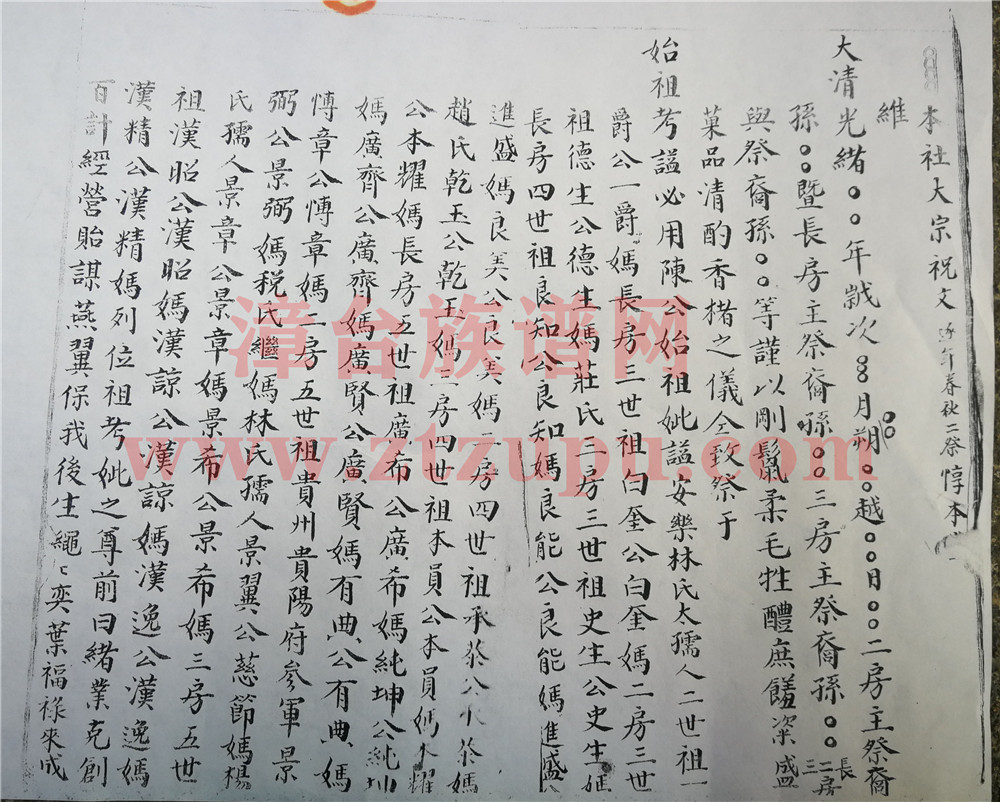 本社大宗祝文 春秋二祭惇本
維
大清光緒○○年歲次○○月朔○○越○○日○○二房主祭裔
孫○○暨長房主祭裔孫○○三房主祭裔孫○○長二三房
與祭裔孫○○等謹以剛鬣柔毛牲醴庶饈粢盛
菓品清酌香楮之儀仝致祭于
始祖考謚必用陳公始祖妣謚安樂林氏太孺人二世祖一
爵公一爵媽長房三世祖白奎公白奎媽二房三世
祖德生公德生媽莊氏三房三世祖史生公史生媽
長房四世祖良知公良知媽良能公良能媽進盛公
進盛媽良美公良美媽二房四世祖承泰公承泰媽
趙氏乾玉公乾玉媽三房四世祖本員公本員媽本耀
公本耀媽長房五世祖廣希公廣希媽純坤公純坤
媽廣齊公廣齊媽廣賢公廣賢媽有典公有典媽
愽章公愽章媽二房五世祖貴州貴陽府參軍景
弼公景弼媽税氏繼媽林氏孺人景翼公慈節媽楊
氏孺人景章公景章媽景希公景希媽三房五世
祖漢昭公漢昭媽漢諒公漢諒媽漢逸公漢逸媽
漢精公漢精媽列位祖考妣之尊前曰緒業克創
百計經營貽謀燕翼保我後生繩〻奕葉福祿來成
漳台族谱网
www.ztzupu.com